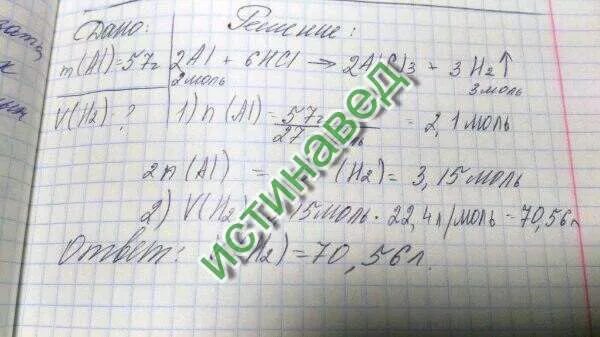 Дано:
Решение:
m(Al)=57г
2Al + 6HCl → 2AlCl3 + 3H2↑
2 моль
3 моль
V(H2)-?
1) n(Al) = 57г / 27 = 2,1 моль
2n(Al) = (H2) = 3,15 моль
2) V(H2 15 моль · 22,4 л/моль = 70,56 л
Ответ: H2) = 70,56 л.
ИСТИНАВЕД